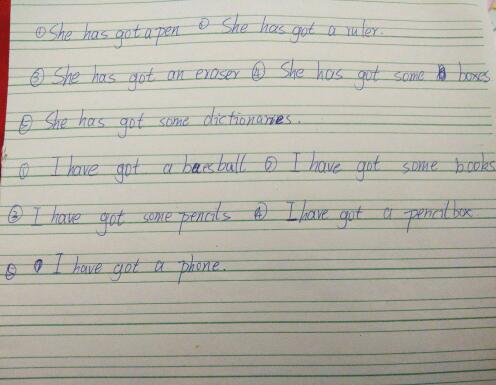 ① She has got a pen ② She has got a ruler.
③ She has got an eraser ④ She has got some boxes
⑤ She has got some dictionaries.
① I have got a baesball ② I have got some books
③ I have got some pencils ④ I have got a pencilbox
⑤ I have got a phone.